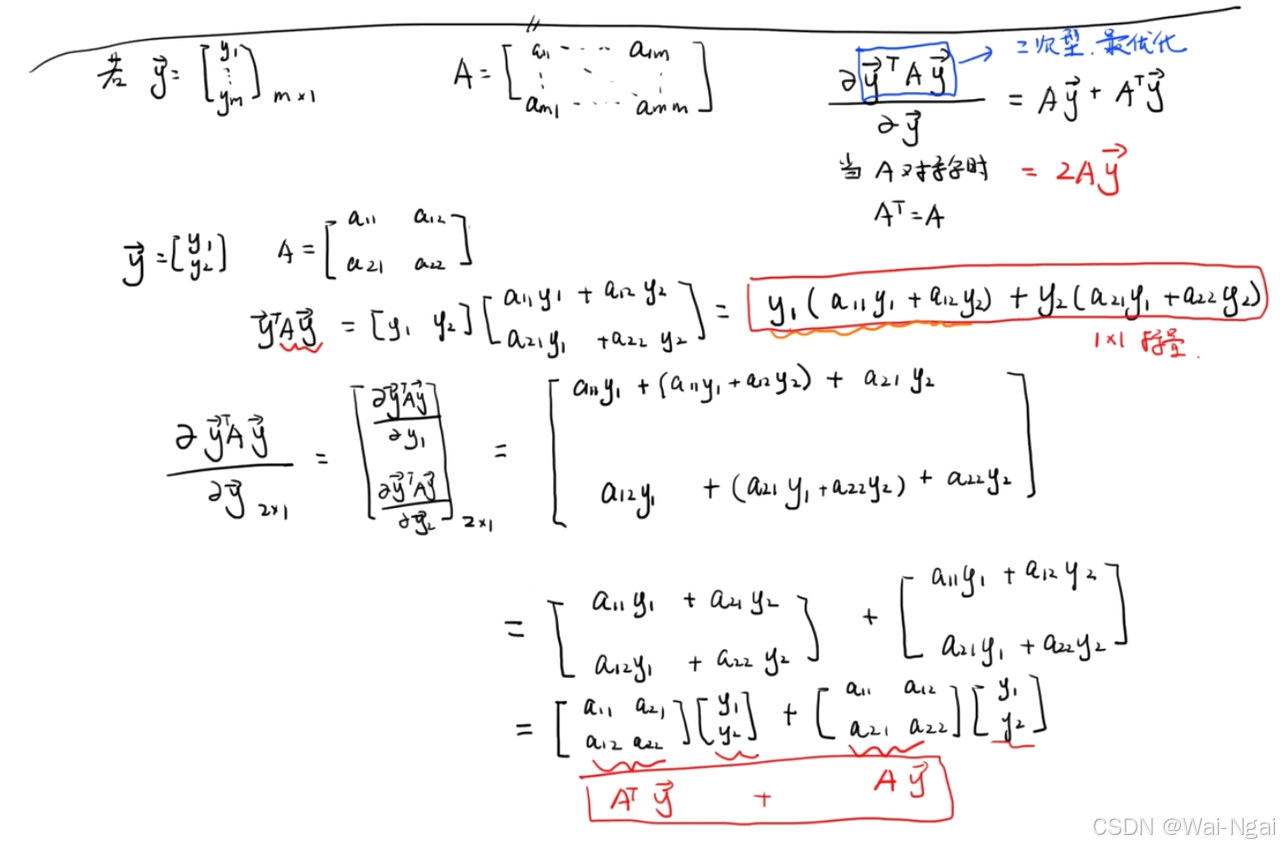 若 y⃗ = [y₁ ⋮ yₘ] ₘ×₁   A = [a₁₁ ⋯ a₁ₘ ⋮ ⋱ ⋮ aₘ₁ ⋯ aₘₘ]
∂ y⃗ᵀ A y⃗ / ∂ y⃗ = A y⃗ + Aᵀ y⃗
二次型. 最优化
当 A 对称时 = 2A y⃗
Aᵀ = A
y⃗ = [y₁ y₂]   A = [a₁₁ a₁₂ a₂₁ a₂₂]
y⃗ᵀAy⃗ = [y₁ y₂] [a₁₁y₁ + a₁₂y₂   a₂₁y₁ + a₂₂y₂] = y₁(a₁₁y₁ + a₁₂y₂) + y₂(a₂₁y₁ + a₂₂y₂)
1×1 标量.
∂ y⃗ᵀA y⃗ / ∂ y⃗ ₂×₁ = [∂y⃗ᵀAy⃗ / ∂y₁   ∂y⃗ᵀAy⃗ / ∂y⃗₂] ₂×₁ = [a₁₁y₁ + (a₁₁y₁ + a₁₂y₂) + a₂₁y₂   a₁₂y₁ + (a₂₁y₁ + a₂₂y₂) + a₂₂y₂]
= [a₁₁y₁ + a₂₁y₂   a₁₂y₁ + a₂₂y₂] + [a₁₁y₁ + a₁₂y₂   a₂₁y₁ + a₂₂y₂]
= [a₁₁ a₂₁ a₁₂ a₂₂] [y₁ y₂] + [a₁₁ a₁₂ a₂₁ a₂₂] [y₁ y₂]
Aᵀ y⃗ + A y⃗
CSDN @Wai-Ngai